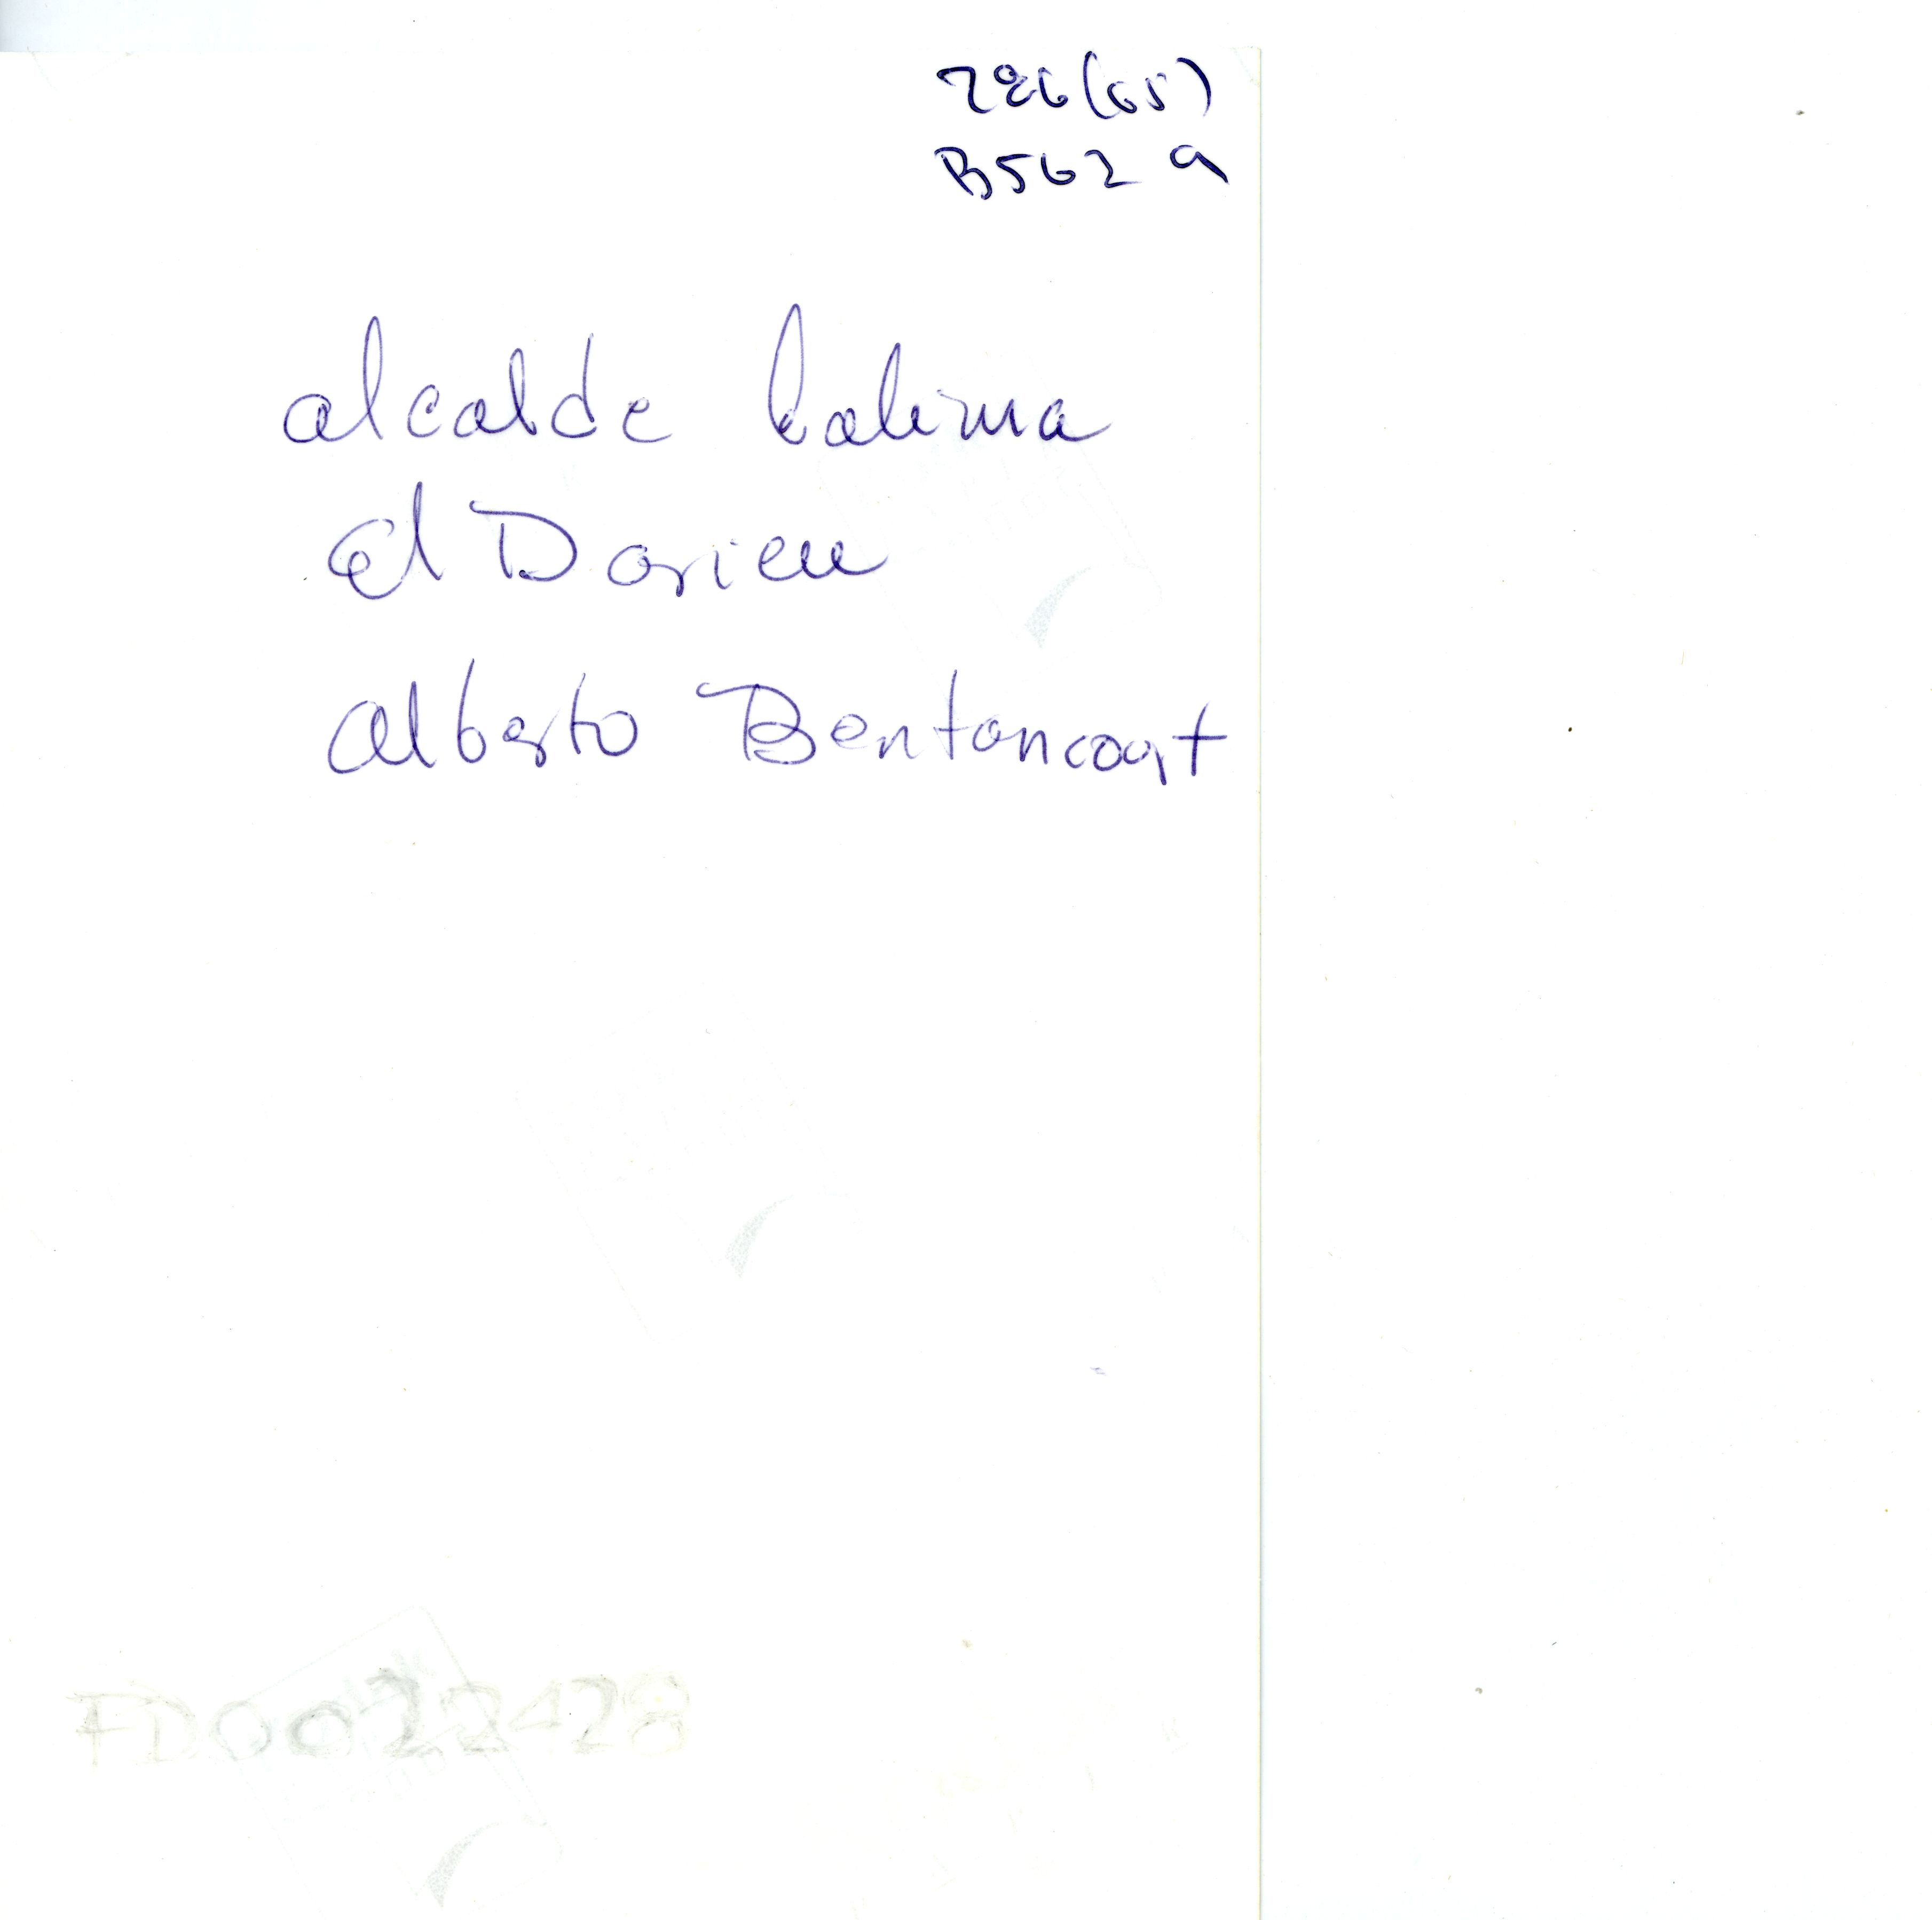 786(65)
B562 a
alcalde Calima
el Darien
Alberto Bentancourt
FD0022428